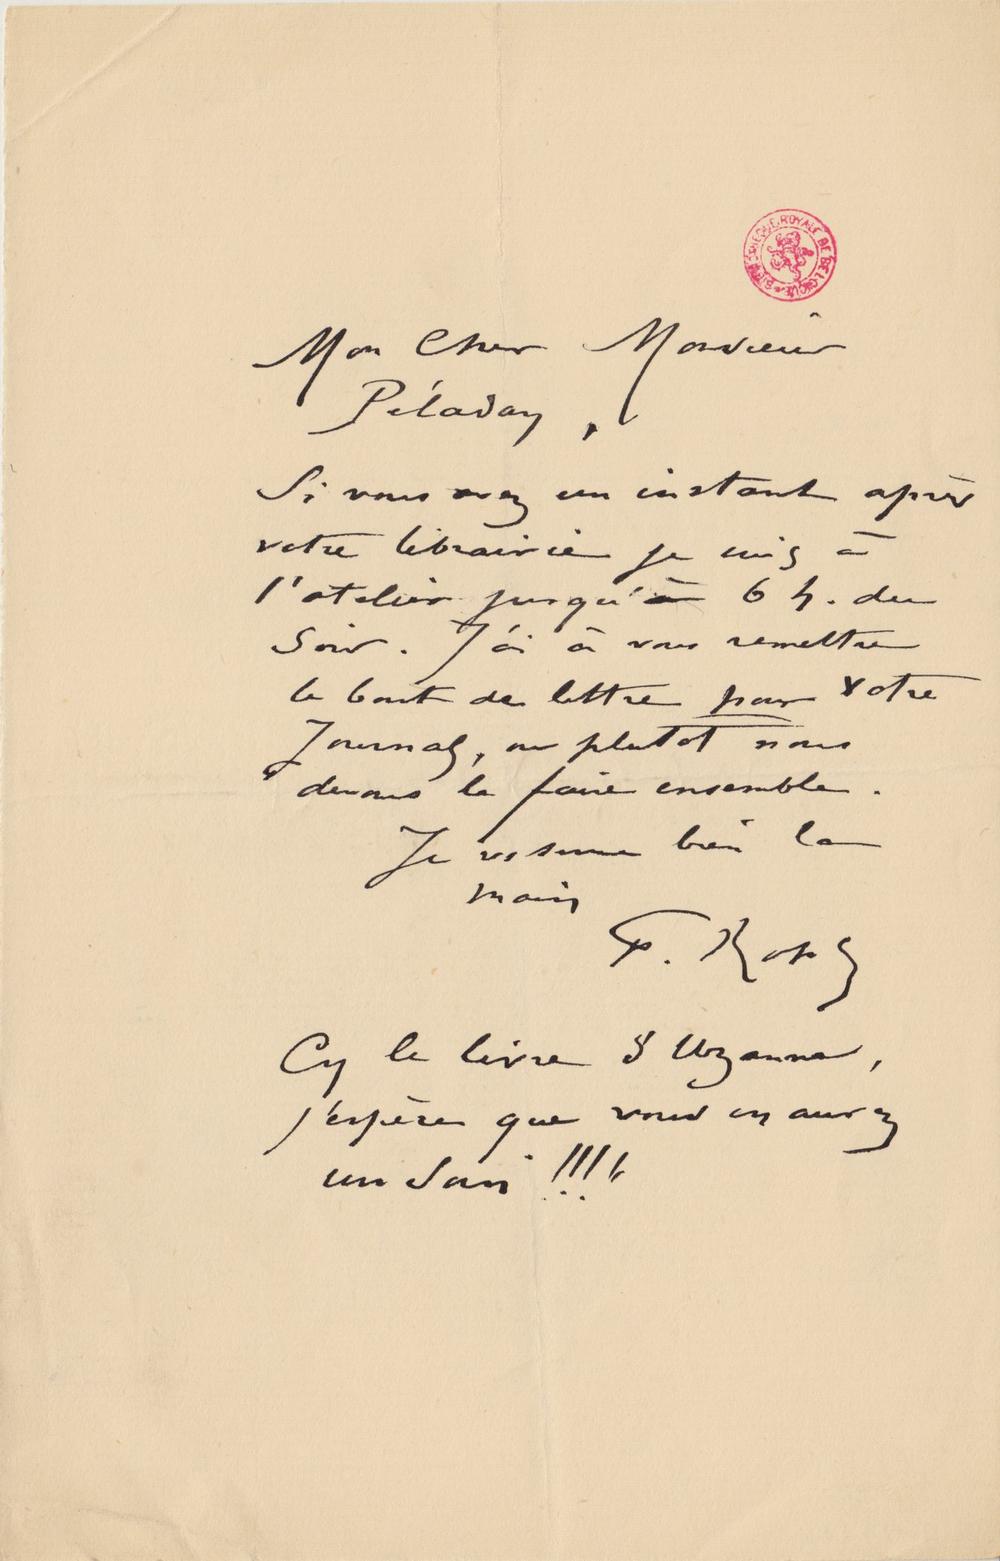 BIBLIOTHEQUE ROYALE DE BELGIQUE
Mon Cher Monsieur
Péladan,
Si vous avez un instant après
votre librairie je suis à
l'atelier jusqu'à 6 h. du
soir. J'ai à vous remettre
le bout de lettre pour votre
Journal, ou plutot nous
devons le faire ensemble.
Je vs serre bien la
main
F. Rops
Cy le livre d'Uzanne,
j'espère que vous en aurez
un Soin !!!!